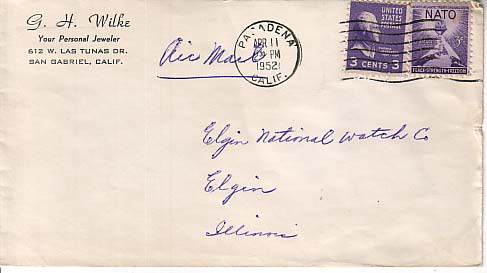 G. H. Wilke
Your Personal Jeweler
612 W. LAS TUNAS DR.
SAN GABRIEL, CALIF.
Air Mail
PASADENA
APR 11
PM
1952
CALIF.
UNITED
STATES
POSTAGE
3 CENTS 3
NATO
3c
PEACE-STRENGTH-FREEDOM
Elgin National Watch Co
Elgin
Illinois